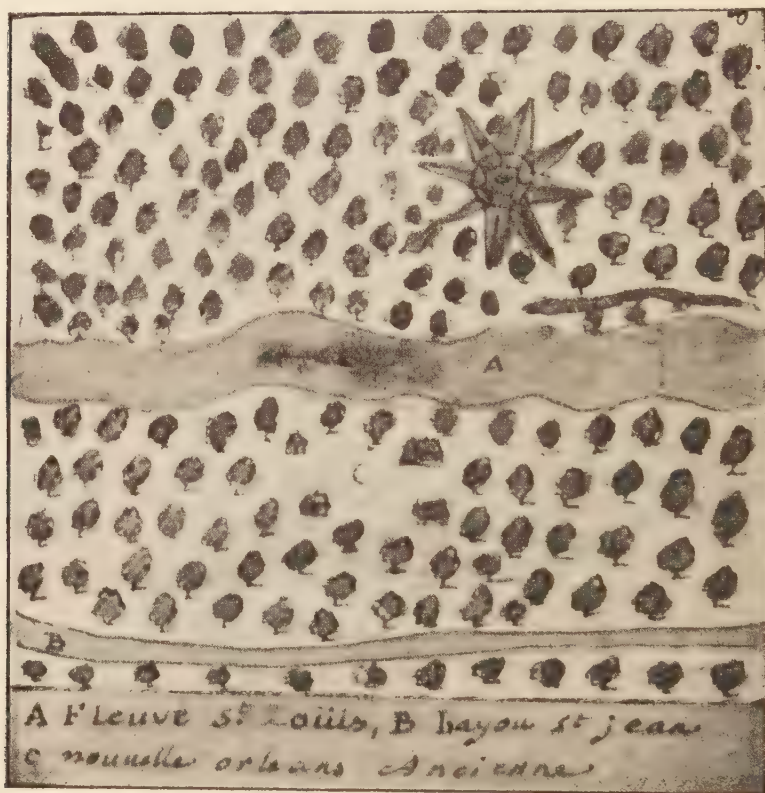 A
C
B
A Fleuve St Loüis, B bayou st jean
C nouuelle orleans Ancienne